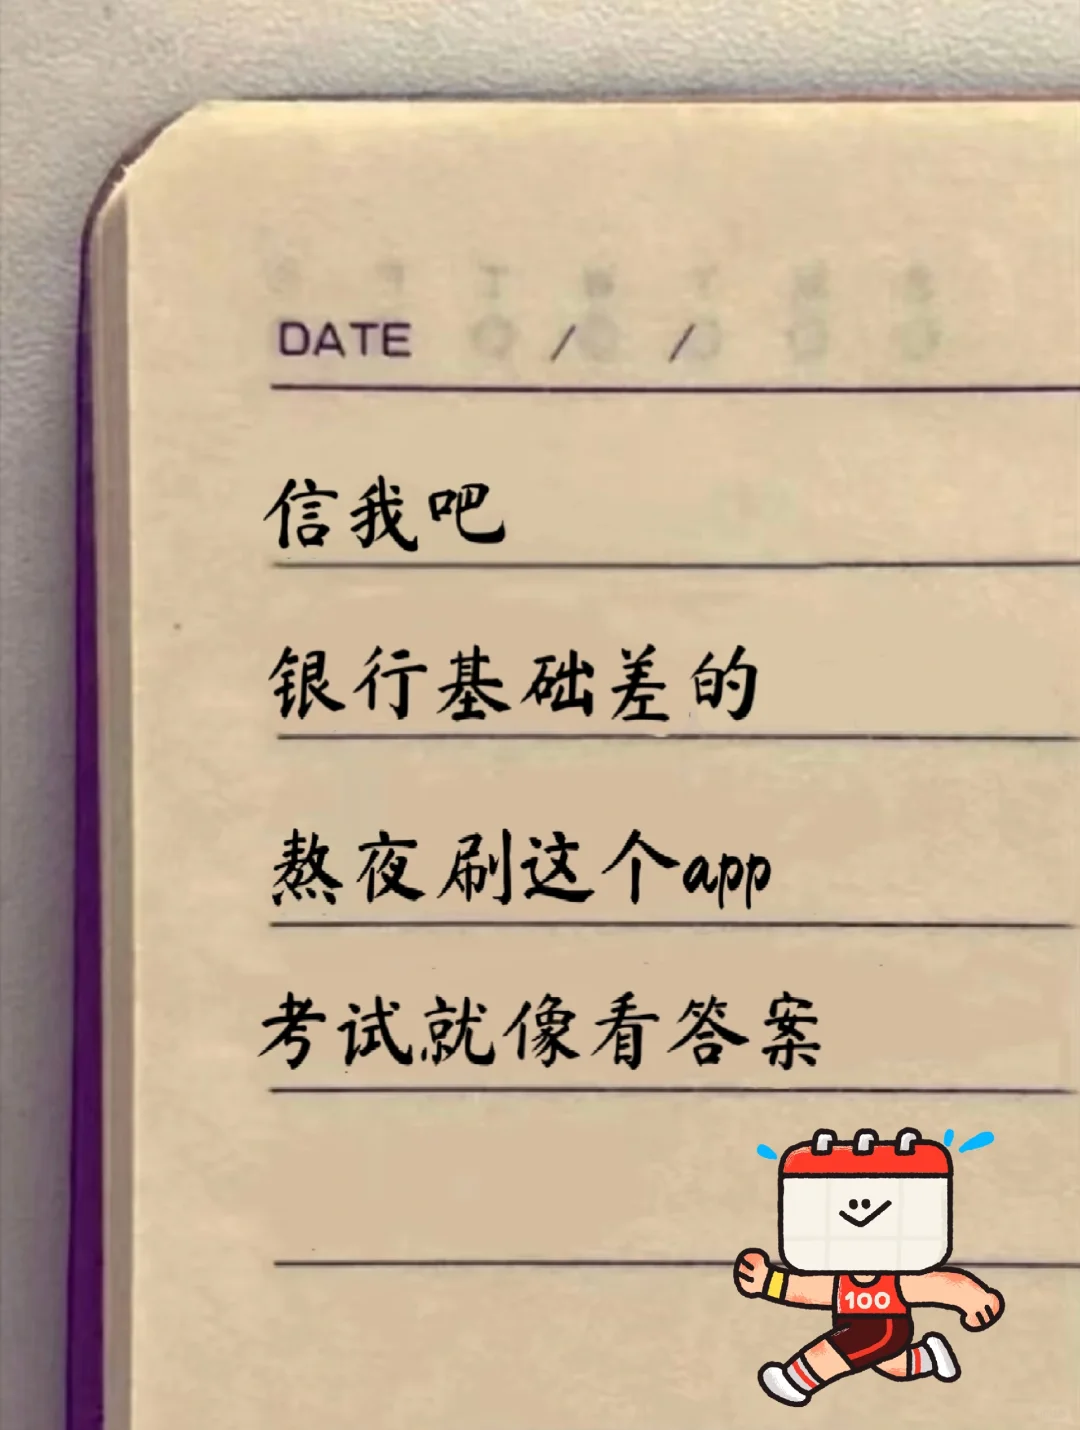 DATE / /
信我吧
银行基础差的
熬夜刷这个app
考试就像看答案
100